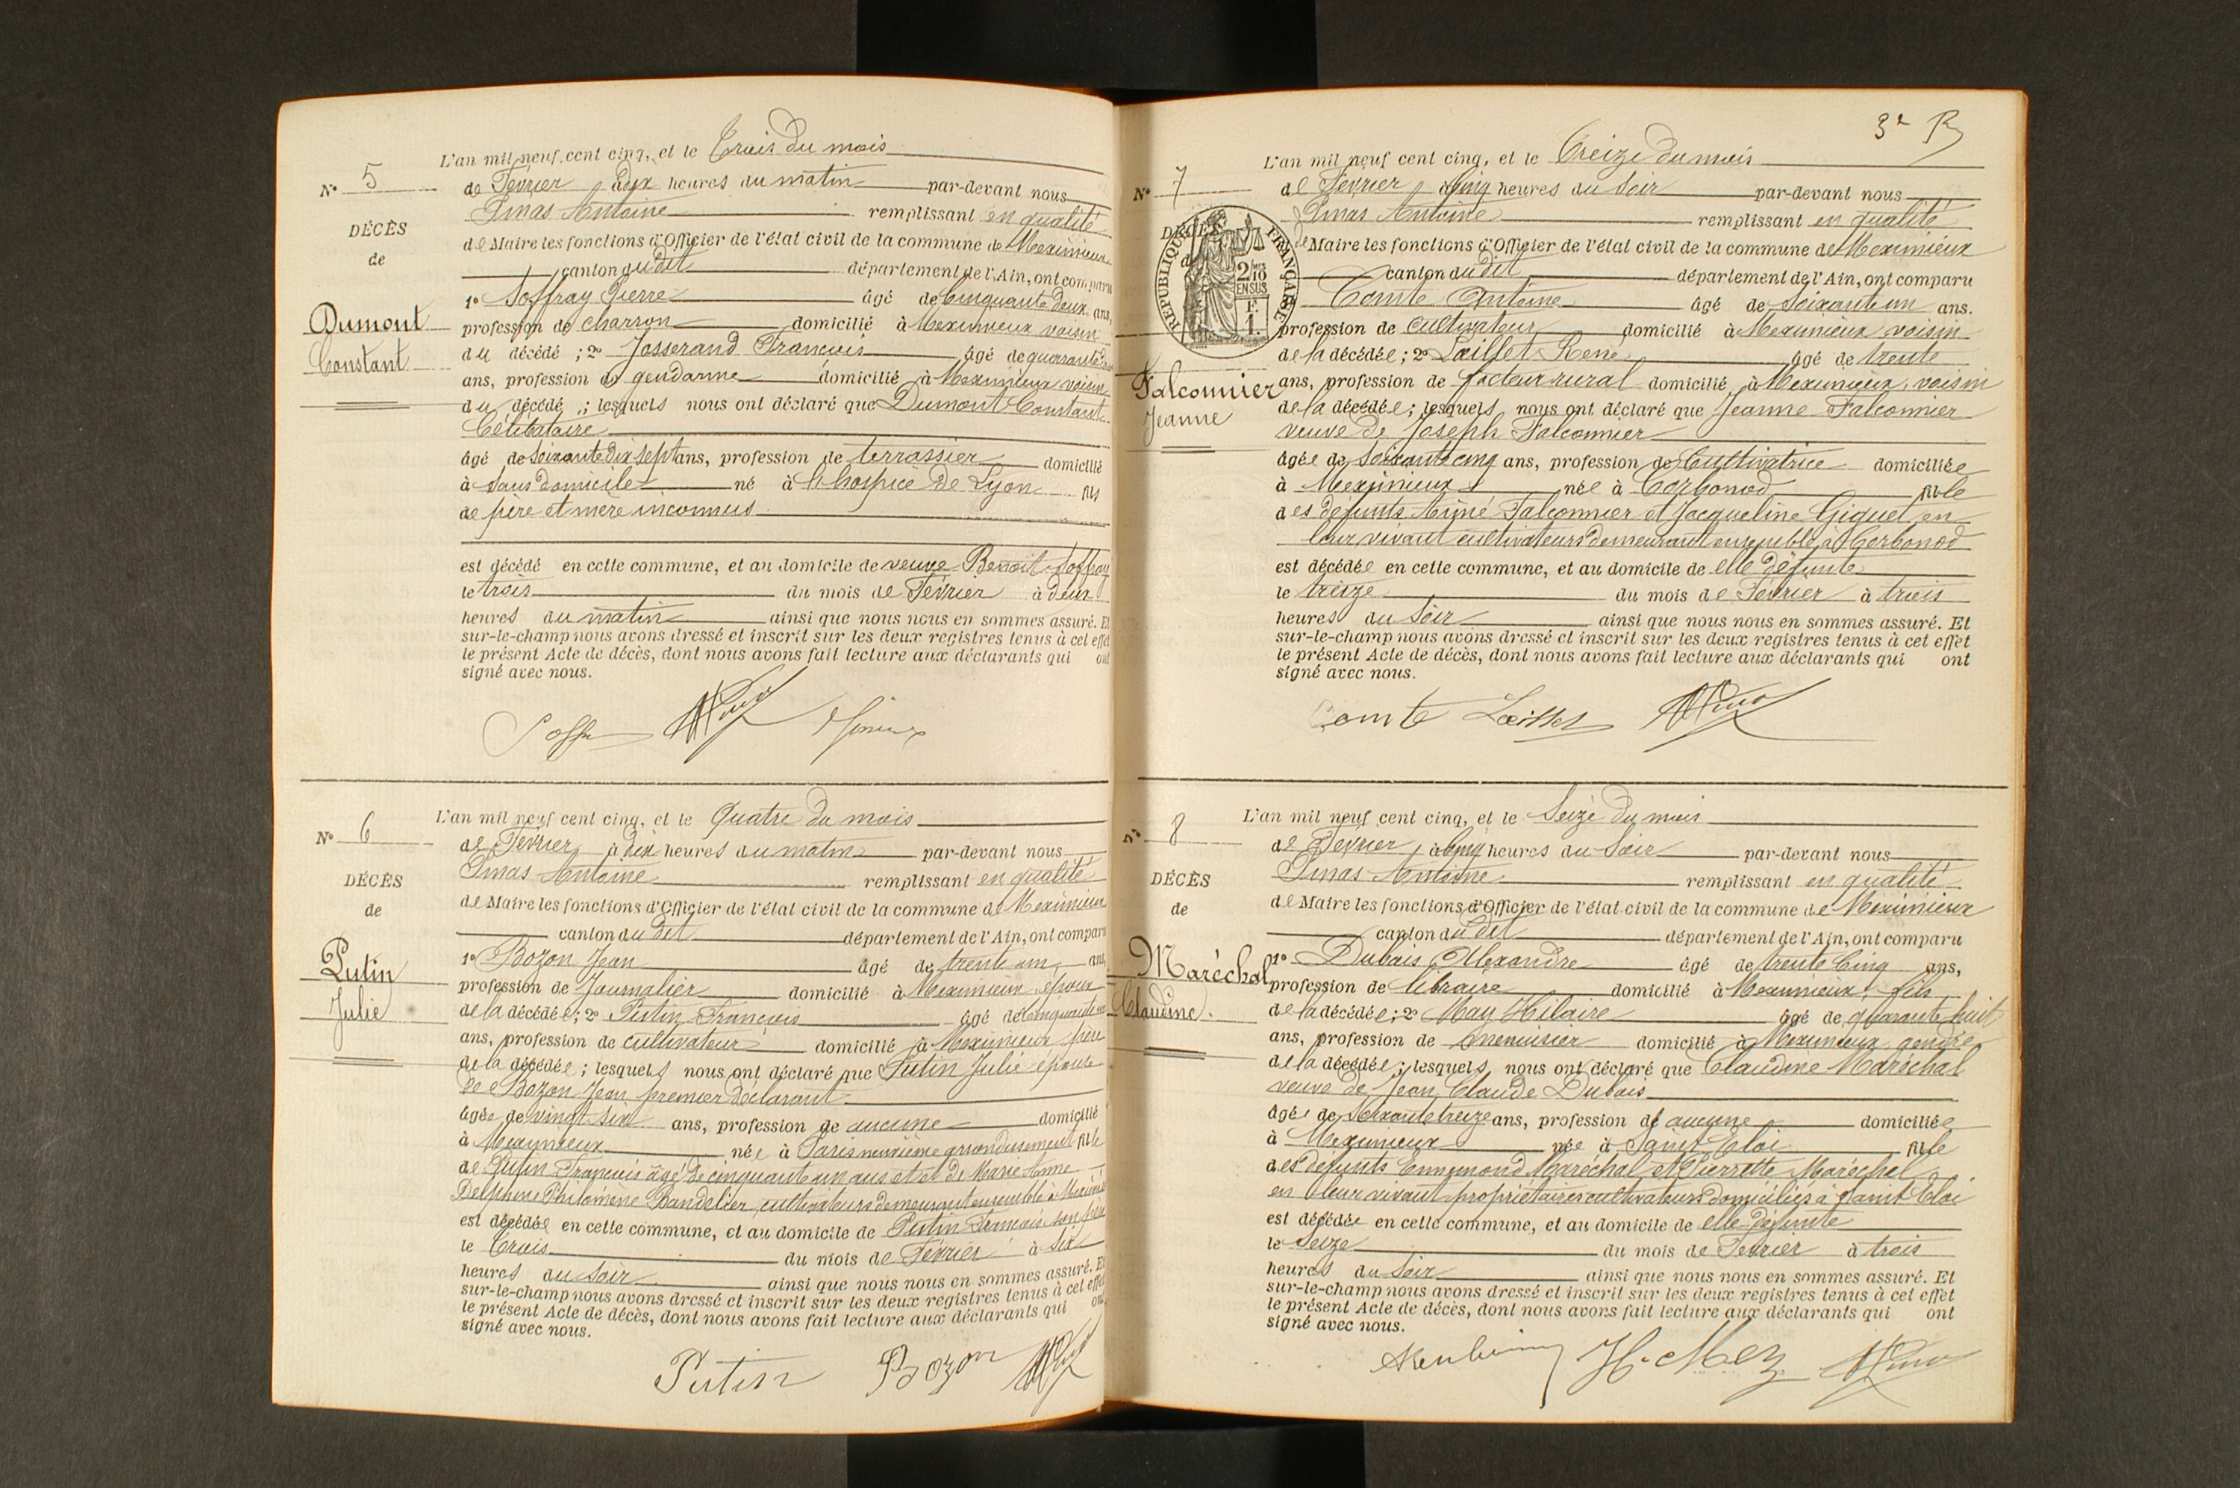 N° 5
DÉCÈS
de
Dumont
Constant
L'an mil neuf cent cinq, et le Trois du mois
de Février à dix heures du matin par-devant nous
Pinas Antoine remplissant en qualité
de Maire les fonctions d'Officier de l'état civil de la commune de Meximieux
canton dudit département de l'Ain, ont comparu
1° Soffray Pierre âgé de Cinquante deux ans,
profession de charron domicilié à Meximieux voisin
du décédé ; 2° Josserand François âgé de quarante
ans, profession de gendarme domicilié à Meximieux voisin
du décédé ; lesquels nous ont déclaré que Dumont Constant
Célibataire
âgé de Soixante dix sept ans, profession de terrassier domicilié
à sans domicile né à l'hospice de Lyon fils
de père et mère inconnus
est décédé en cette commune, et au domicile de veuve Benoit Soffray
le trois du mois de Février à deux
heures du matin ainsi que nous nous en sommes assuré. Et
sur-le-champ nous avons dressé et inscrit sur les deux registres tenus à cet effet
le présent Acte de décès, dont nous avons fait lecture aux déclarants qui ont
signé avec nous.
N° 6
DÉCÈS
de
Putin
Julie
L'an mil neuf cent cinq, et le Quatre du mois
de Février à dix heures du matin par-devant nous
Pinas Antoine remplissant en qualité
de Maire les fonctions d'Officier de l'état civil de la commune de Meximieux
canton dudit département de l'Ain, ont comparu
1° Bozon Jean âgé de trente un ans,
profession de Journalier domicilié à Meximieux époux
de la décédée ; 2° Putin François âgé de Cinquante un
ans, profession de cultivateur domicilié à Meximieux père
de la décédée ; lesquels nous ont déclaré que Putin Julie épouse
de Bozon Jean premier déclarant
âgée de vingt six ans, profession de aucune domicilié
à Meximieux née à Paris neuvième arrondissement fille
de Putin François âgé de cinquante un ans et de Marie Anne
Delphine Philomène Bandelier cultivateurs demeurant ensemble à Meximieux
est décédée en cette commune, et au domicile de Putin François son père
le Trois du mois de Février à Six
heures du Soir ainsi que nous nous en sommes assuré. Et
sur-le-champ nous avons dressé et inscrit sur les deux registres tenus à cet effet
le présent Acte de décès, dont nous avons fait lecture aux déclarants qui ont
signé avec nous.
Putin Bozon
3e
N° 7
DÉCÈS
de
RÉPUBLIQUE FRANÇAISE
2/10 EN SUS
1 F.
Falconnier
Jeanne
L'an mil neuf cent cinq, et le Treize du mois
de Février à Cinq heures du Soir par-devant nous
Pinas Antoine remplissant en qualité
de Maire les fonctions d'Officier de l'état civil de la commune de Meximieux
canton dudit département de l'Ain, ont comparu
Comte Antoine âgé de Soixante un ans.
profession de Cultivateur domicilié à Meximieux voisin
de la décédée ; 2° Laisset René âgé de trente
ans, profession de facteur rural domicilié à Meximieux, voisin
de la décédée ; lesquels nous ont déclaré que Jeanne Falconnier
veuve de Joseph Falconnier
âgée de Soixante cinq ans, profession de Cultivatrice domiciliée
à Meximieux née à Corbonod fille
des défunts Aimé Falconnier et Jacqueline Giguet en
leur vivant cultivateurs demeurant ensemble à Corbonod
est décédée en cette commune, et au domicile de elle défunte
le treize du mois de Février à trois
heures du Soir ainsi que nous nous en sommes assuré. Et
sur-le-champ nous avons dressé et inscrit sur les deux registres tenus à cet effet
le présent Acte de décès, dont nous avons fait lecture aux déclarants qui ont
signé avec nous.
Comte Laisset
N° 8
DÉCÈS
de
Maréchal
Claudine.
L'an mil neuf cent cinq, et le Seize du mois
de Février à Cinq heures du Soir par-devant nous
Pinas Antoine remplissant en qualité
de Maire les fonctions d'Officier de l'état civil de la commune de Meximieux
canton dudit département de l'Ain, ont comparu
1° Dubois Alexandre âgé de trente Cinq ans,
profession de libraire domicilié à Meximieux, fils
de la décédée ; 2° May Hilaire âgé de quarante huit
ans, profession de menuisier domicilié à Meximieux gendre
de la décédée ; lesquels nous ont déclaré que Claudine Maréchal
veuve de Jean Claude Dubois
âgée de Soixante treize ans, profession de aucune domiciliée
à Meximieux née à Saint Eloi fille
des défunts Ennemond Maréchal et Pierrette Maréchal
en leur vivant propriétaires cultivateurs domiciliés à Saint Eloi
est décédée en cette commune, et au domicile de elle défunte
le Seize du mois de Février à trois
heures du Soir ainsi que nous nous en sommes assuré. Et
sur-le-champ nous avons dressé et inscrit sur les deux registres tenus à cet effet
le présent Acte de décès, dont nous avons fait lecture aux déclarants qui ont
signé avec nous.